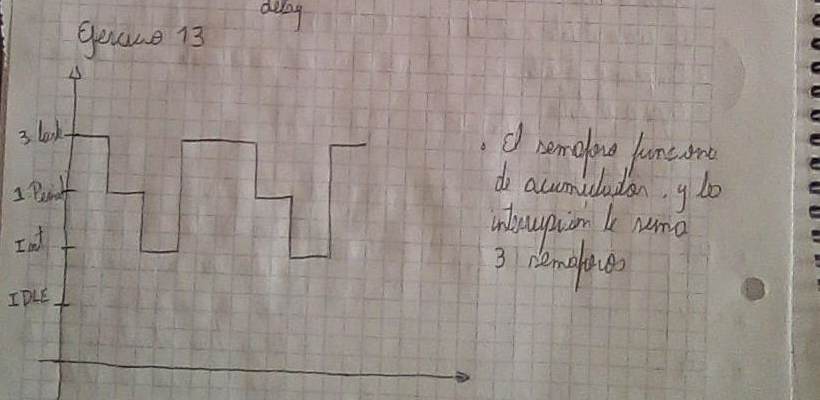 delay
Ejercicio 13
3. task
1 Period
Int
IDLE
. El semaforo funciona
de acumulador. y la
interrupción le suma
3 semaforos